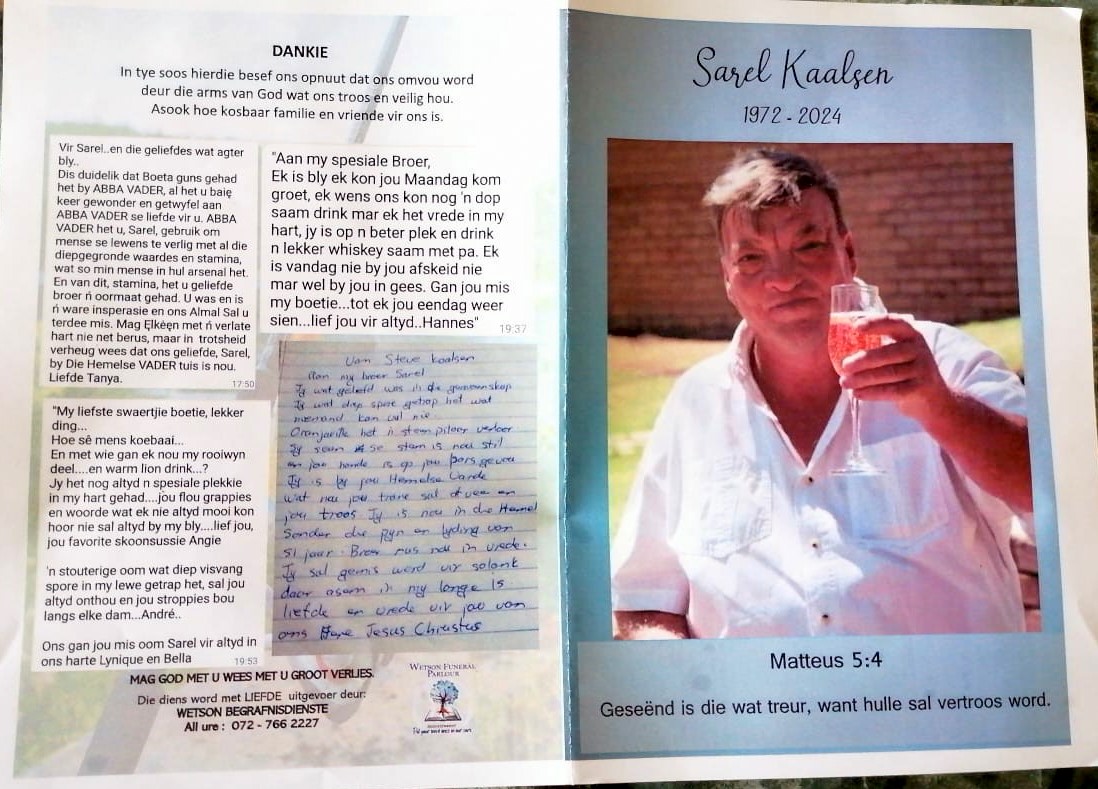 DANKIE
In tye soos hierdie besef ons opnuut dat ons omvou word
deur die arms van God wat ons troos en veilig hou.
Asook hoe kosbaar familie en vriende vir ons is.
Vir Sarel..en die geliefdes wat agter
bly..
Dis duidelik dat Boeta guns gehad
het by ABBA VADER, al het u baię
keer gewonder en getwyfel aan
ABBA VADER se liefde vir u. ABBA
VADER het u, Sarel, gebruik om
mense se lewens te verlig met al die
diepgegronde waardes en stamina,
wat so min mense in hul arsenal het.
En van dit, stamina, het u geliefde
broer ń oormaat gehad. U was en is
ń ware insperasie en ons Almal Sal u
terdee mis. Mag Ęlkęęn met ń verlate
hart nie net berus, maar in trotsheid
verheug wees dat ons geliefde, Sarel,
by Die Hemelse VADER tuis is nou.
Liefde Tanya.
17:50
"Aan my spesiale Broer,
Ek is bly ek kon jou Maandag kom
groet, ek wens ons kon nog 'n dop
saam drink mar ek het vrede in my
hart, jy is op n beter plek en drink
n lekker whiskey saam met pa. Ek
is vandag nie by jou afskeid nie
mar wel by jou in gees. Gan jou mis
my boetie...tot ek jou eendag weer
sien...lief jou vir altyd..Hannes"
19:37
"My liefste swaertjie boetie, lekker
ding...
Hoe sê mens koebaai...
En met wie gan ek nou my rooiwyn
deel....en warm lion drink...?
Jy het nog altyd n spesiale plekkie
in my hart gehad....jou flou grappies
en woorde wat ek nie altyd mooi kon
hoor nie sal altyd by my bly....lief jou,
jou favorite skoonsussie Angie
'n stouterige oom wat diep visvang
spore in my lewe getrap het, sal jou
altyd onthou en jou stroppies bou
langs elke dam...André..
Ons gan jou mis oom Sarel vir altyd in
ons harte Lynique en Bella
19:53
Van Steve Kaalsen
Aan my broer Sarel
Jy wat geliefd was in die gemeenskap
Jy wat diep spore getrap het wat
niemand kan vul nie.
Oranjeville het 'n steunpilaar verloor
Jy stem is nou stil
en jou hande is op jou bors gevou
Jy is by jou Hemelse Vader
wat nou jou trane sal afvee en
jou troos Jy is nou in die Hemel
Sonder die pyn en lyding van
51 jaar. Broer rus nou in vrede.
Jy sal gemis word vir solank
daar asem in my longe is
liefde en vrede vir jou van
ons Here Jesus Christus
MAG GOD MET U WEES MET U GROOT VERLIES.
Die diens word met LIEFDE uitgevoer deur:
WETSON BEGRAFNISDIENSTE
All ure : 072 - 766 2227
WETSON FUNERAL
PARLOUR
Sarel Kaalsen
1972 - 2024
Matteus 5:4
Geseënd is die wat treur, want hulle sal vertroos word.